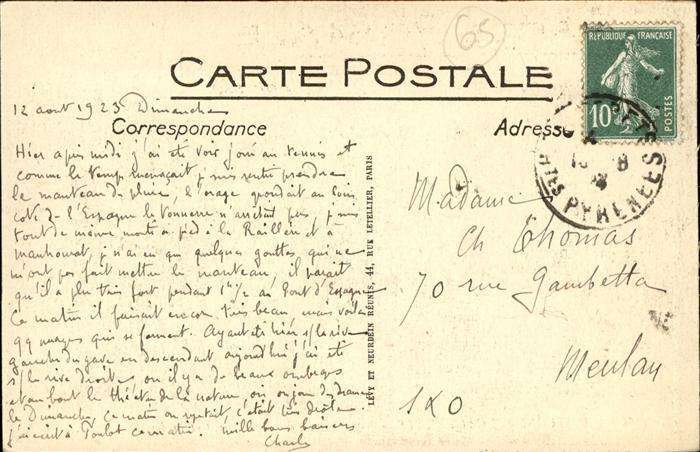 65
CARTE POSTALE
RÉPUBLIQUE FRANÇAISE
10c
POSTES
Htes PYRÉNÉES
12 aout 1923 Dimanche
Correspondance
Adresse
Hier après midi j'ai été voir jouer au tennis et
comme le temps menaçait je suis rentré prendre
le manteau de pluie, l'orage grondait au loin
coté de l'Espagne le tonnerre n'arrêtait pas, je suis
tout de même monté à pied à la Raillère et à
Mauhourat, je n'ai eu que quelques gouttes qui ne
m'ont pas fait mettre le manteau, il parait
qu'il a plu très fort pendant 1h 1/2 au Pont d'Espagne
Ce matin il faisait encore très beau, mais voila
qq nuages qui se forment. Ayant été hier s/ la rive
gauche du gave en descendant aujourd'hui j'ai été
s/ la rive droite, où il y a de beaux ombrages
et au bout le théatre de la nature, où on joue des drames
le Dimanche, ce matin on répétait, c'était très drôle
j'écrirai à Toulot ce matin. mille bons baisers
Charles
LÉVY ET NEURDEIN RÉUNIS, 44, RUE LETELLIER, PARIS
Madame
Ch Thomas
70 rue Gambetta
Meulan
S & O